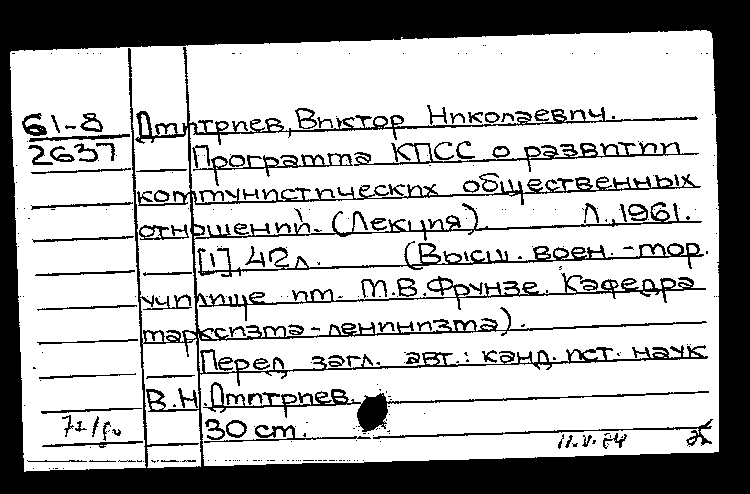 61-8 Дмитриев, Виктор Николаевич.
2637 Программа КПСС о развитии
коммунистических общественных
отношений. (Лекция). Л., 1961.
[1], 42 л. (Высш. воен.-мор.
училище им. М.В.Фрунзе. Кафедра
марксизма-ленинизма).
Перед загл. авт.: канд. ист. наук
В.Н.Дмитриев.
30 cm.